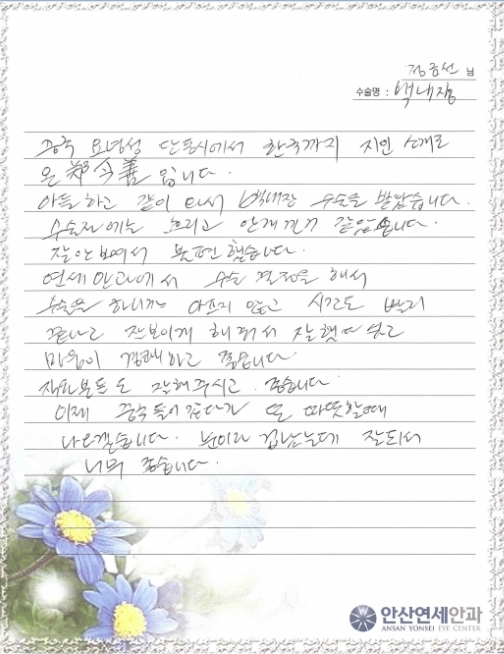 정금선 님
수술명 : 백내장
중국 요녕성 단동시에서 한국까지 지인 소개로
온 鄭今善 입니다.
아들하고 같이 와서 백내장 수술을 받았습니다.
수술전에는 흐리고 안개낀거 같았습니다.
잘 안보여서 불편했습니다.
연세안과에서 수술 결정을 해서
수술을 하니까는 아프지 않고 시간도 빨리
끝나고 잘보이게 해줘서 잘했다 싶고
마음이 경쾌하고 좋습니다.
직원분들도 잘해주시고 좋습니다.
이제 중국 들어 갔다가 또 따뜻할때
나오겠습니다. 눈이라 겁났는데 잘되서
너무 좋습니다.
안산연세안과
ANSAN YONSEI EYE CENTER